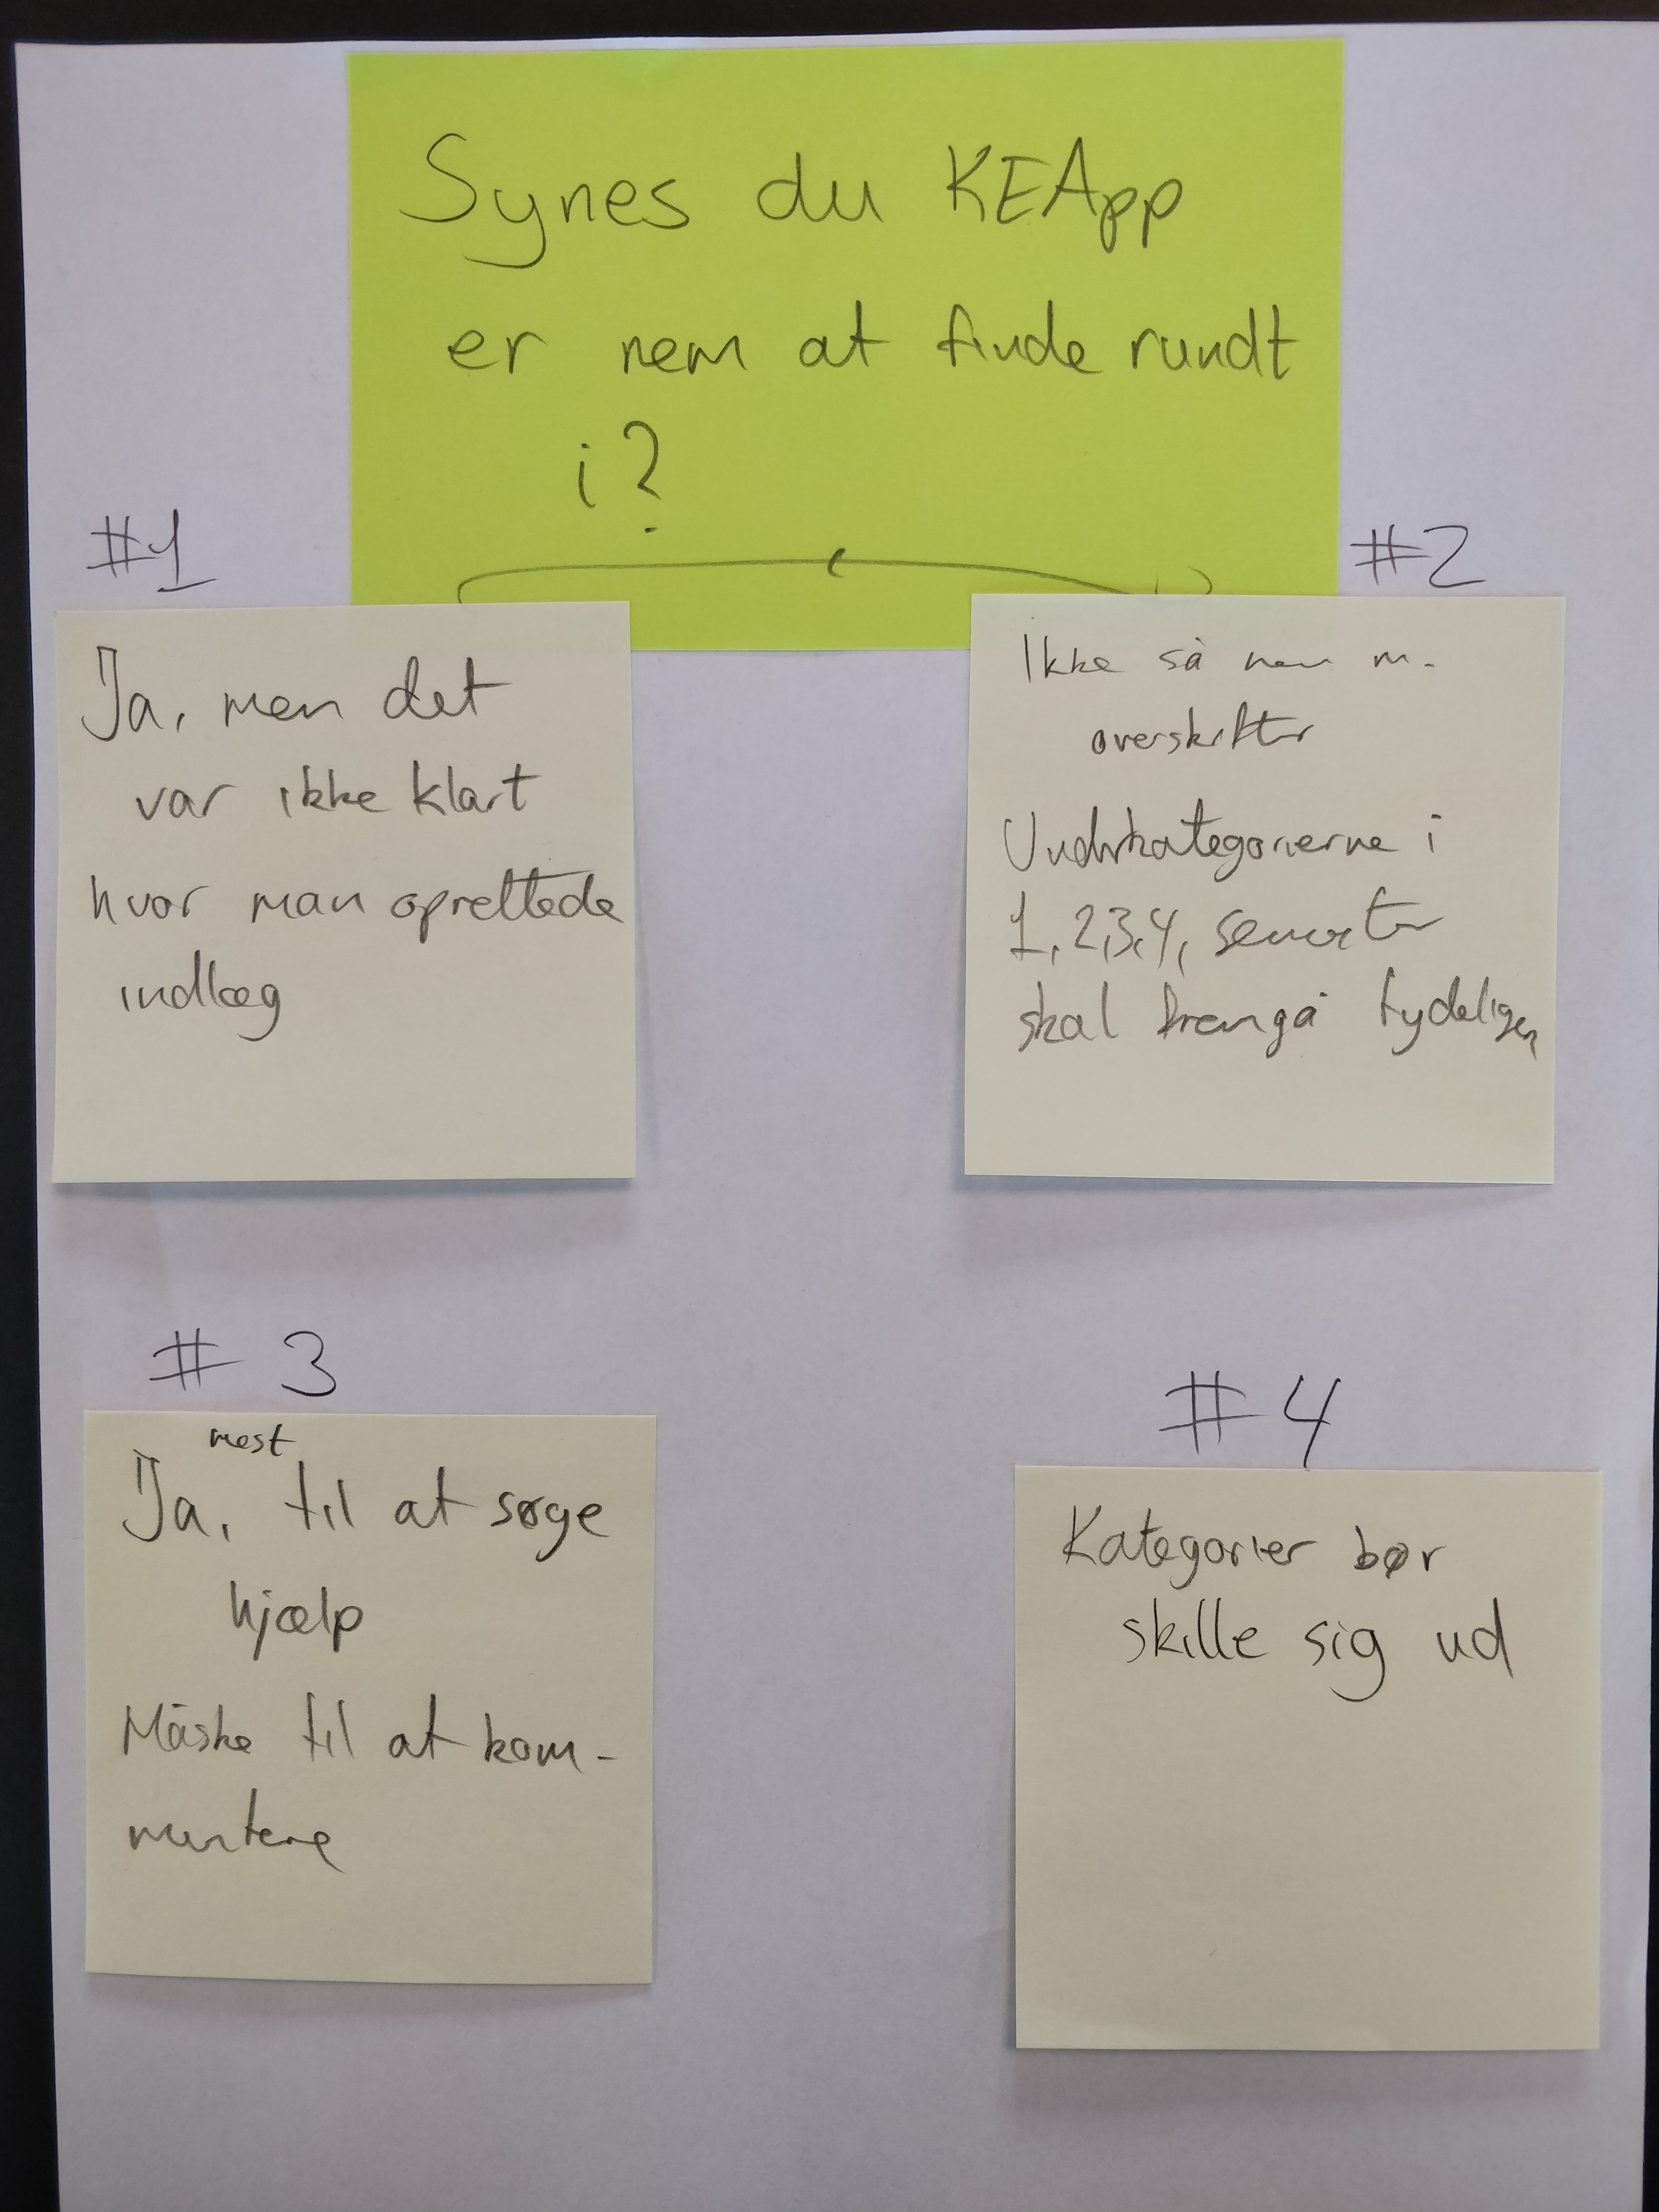 Synes du KEApp
er nem at finde rundt
i?
#1
Ja, men det
var ikke klart
hvor man oprettede
indlæg
#2
Ikke så nem m.
overskrifter
Underkategorierne i
1, 2, 3, 4, semester
skal fremgå tydeligere
# 3
mest
Ja, til at søge
hjælp
Måske til at kom-
mentere
#4
Kategorier bør
skille sig ud